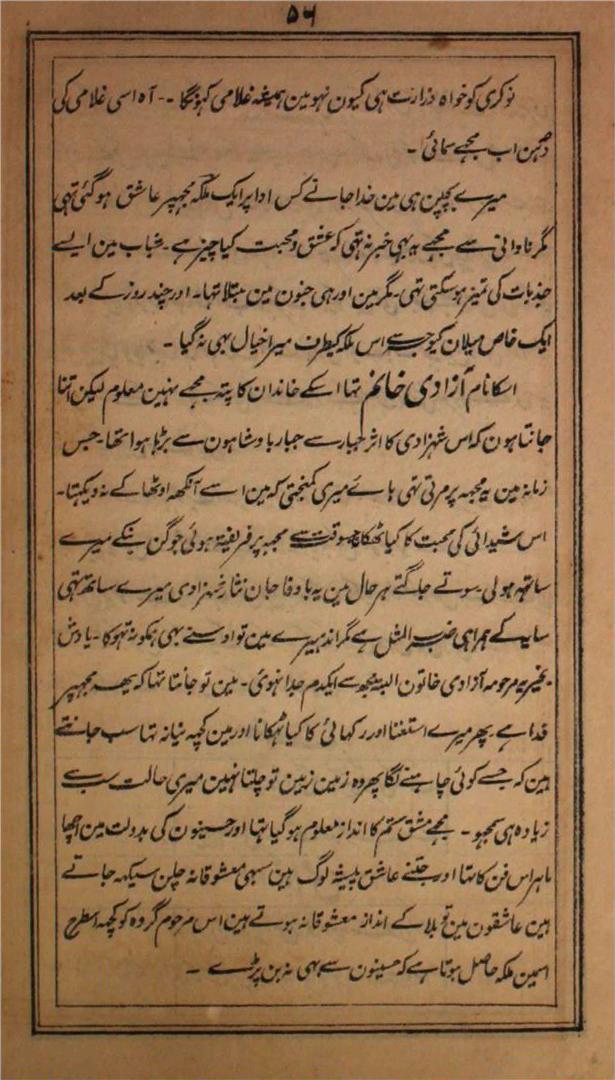 ۵۶
نوکری کو خواہ وزارت ہی کیون نہو مین ہمیشہ غلامی کہونگا ۔۔ آہ اسی غلامی کی
دُہن اب مجہے سمائی ۔
میرے بچپن ہی مین خدا جانے کس ادا پر ایک ملکہ مجہپر عاشق ہو گئی تہی
مگر نادانی سے مجہے یہ بہی خبر نہ تہی کہ عشق و محبت کیا چیز ہے ۔ شباب مین ایسے
جذبات کی تمیز ہو سکتی تہی ۔ مگر مین اور ہی جنون مین مبتلا تہا ۔ اور چند روز کے بعد
ایک خاص میلان کیوجہ سے اس ملکہ کیطرف میرا خیال بہی نہ گیا ۔
اسکا نام آزادی خانم تہا اسکے خاندان کا پتہ مجہے نہین معلوم لیکن اتنا
جانتا ہون کہ اس شہزادی کا اثر جبار سے جبار بادشاہون سے بڑہا ہوا تہا ۔ جس
زمانہ مین یہ مجہہ پر مرتی تہی ہائے میری کمبختی کہ مین اسے آنکھہ اوٹھا کے نہ دیکہتا ۔
اس شیدائی کی محبت کا کیا ٹھکانا جسوقت سے مجہہ پر فریفتہ ہوئی جوگن بنکے میرے
ساتہہ ہولی ۔ سوتے جاگتے ہر حال مین یہ باوفا جان نثار شہزادی میرے ساتھہ تہی
سایہ کے ہمراہی ضرب المثل ہے مگر اندہیرے مین تو اوسنے بہی ہمکو نہ تہوکا ۔ یادش
بخیر یہ مرحومہ آزادی خاتون البتہ مجھہ سے ایکدم جدا نہوئی ۔ مین تو جانتا تہا کہ یہہ مجہپر
فدا ہے پھر میرے استغنا اور رکہائی کا کیا ٹہکانا اور مین کچہہ نیا نہ تہا سب جانتے
ہین کہ جسے کوئی چاہنے لگا پھر وہ زمین زمین تو چلتا نہین میری حالت سب سے
زیادہ ہی سمجہو ۔ مجہے مشق ستم کا انداز معلوم ہو گیا تہا اور حسینون کی بدولت مین اچہا
ماہر اس فن کا تہا اور جتنے عاشق پیشہ لوگ ہین سبہی معشوقانہ چلن سیکہہ جاتے
ہین عاشقون مین تو بلا کے انداز معشوقانہ ہوتے ہین اس مرحوم گروہ کو کچہہ اسطرح
اسمین ملکہ حاصل ہوتا ہے کہ حسینون سے بہی نہ بن پڑے ۔